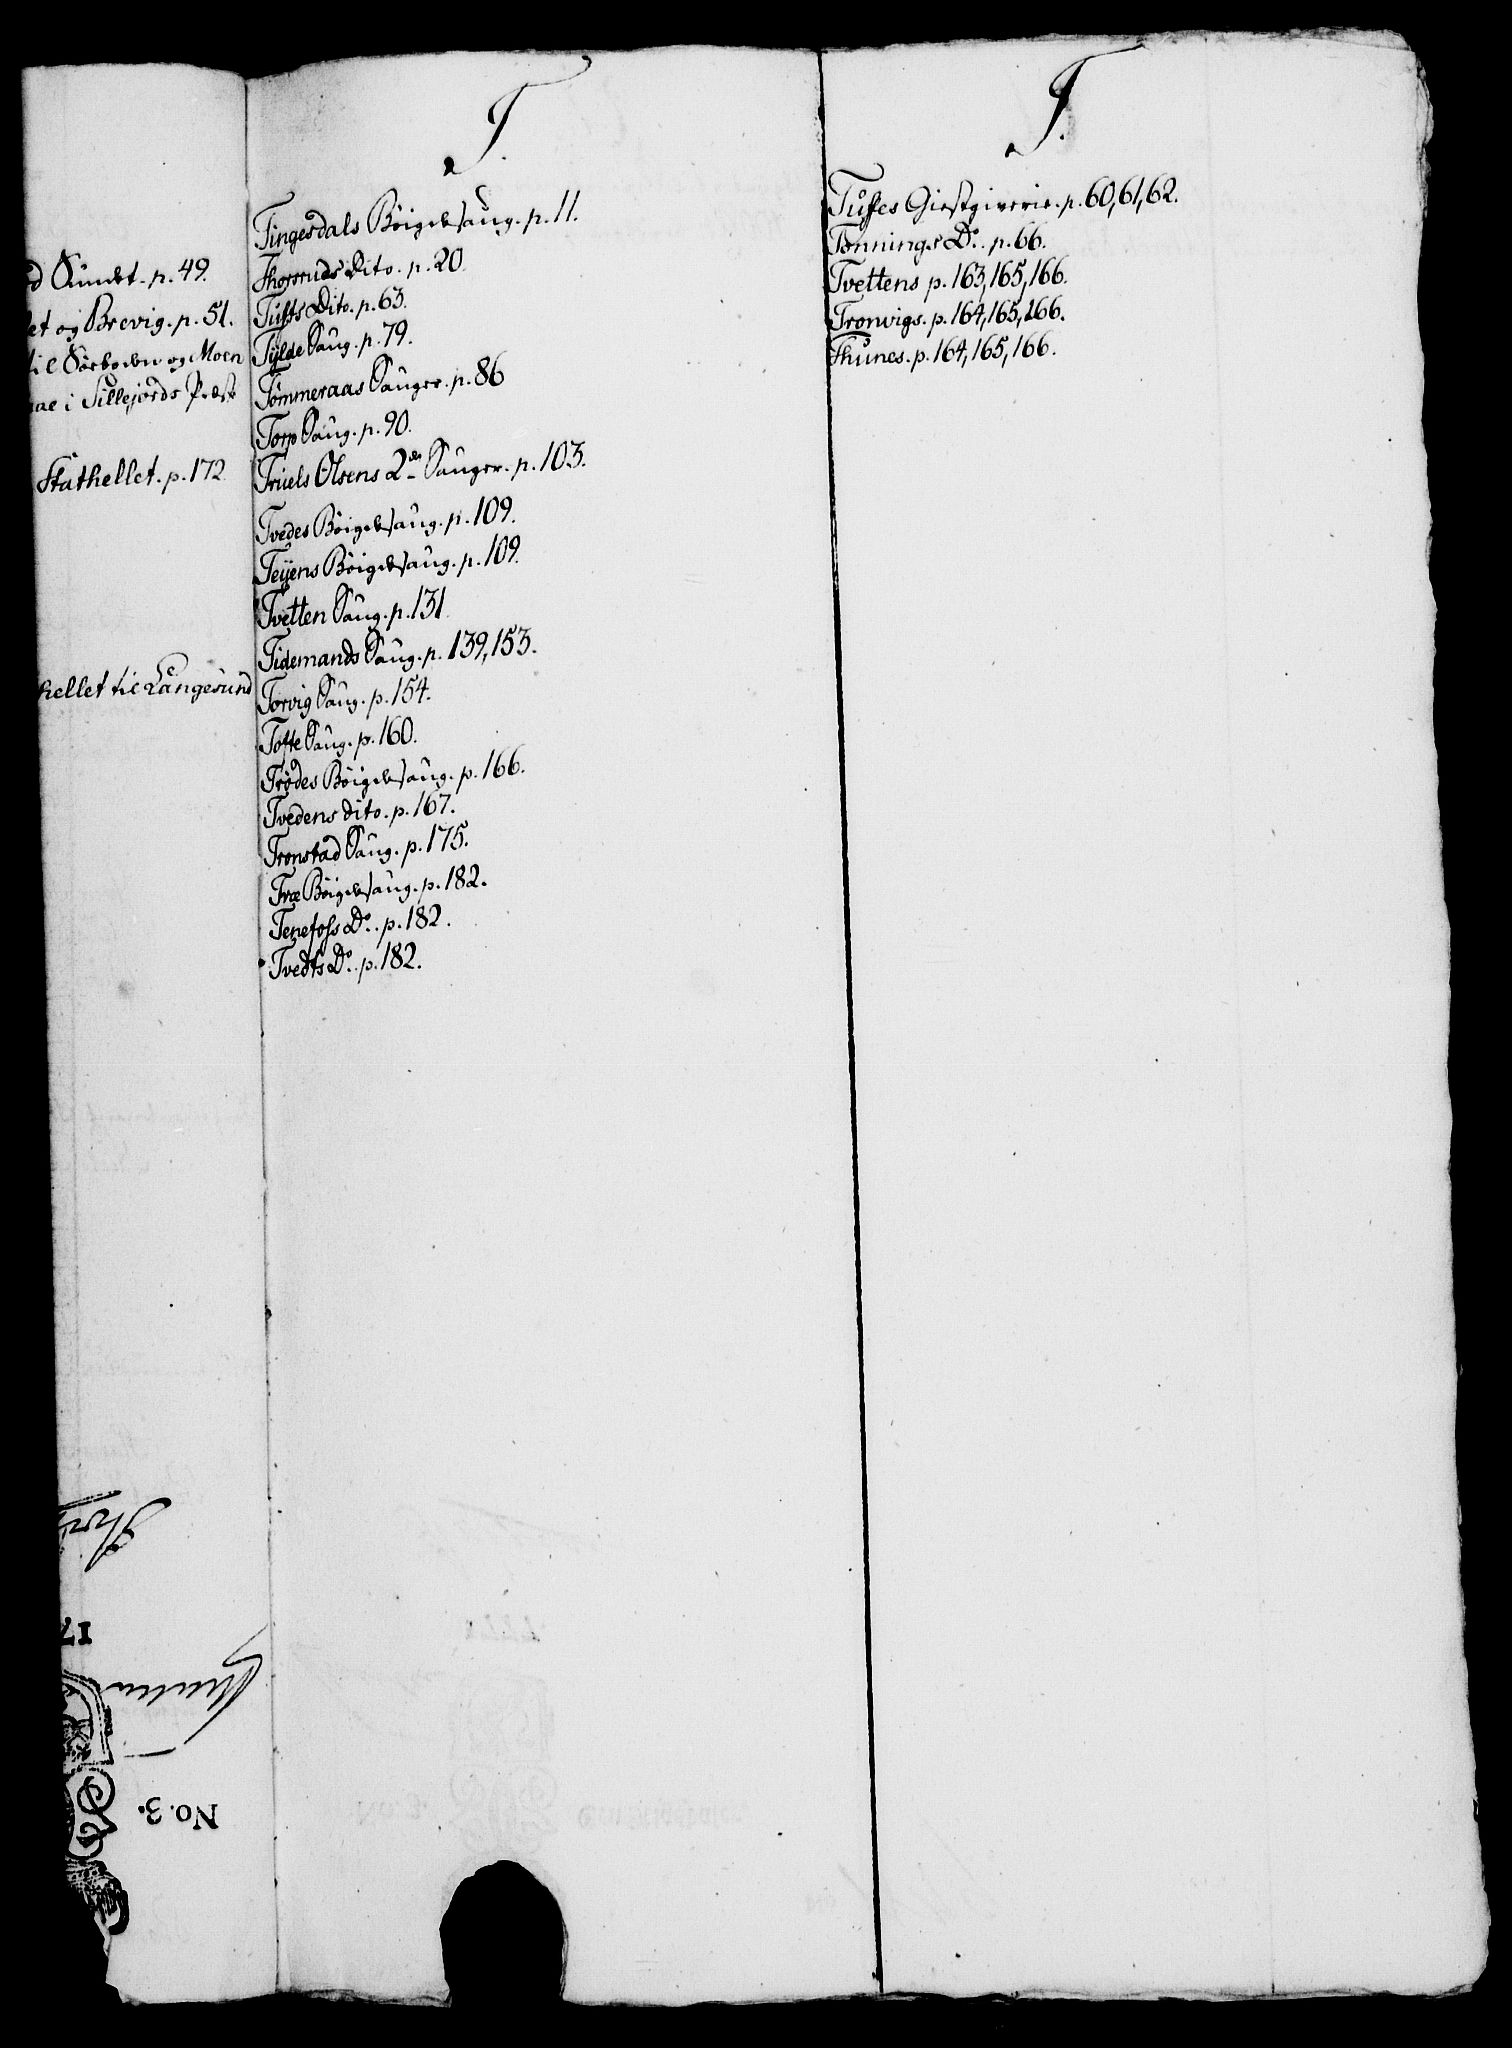 d Sundt. p. 49.
et og Brevig. p. 51.
til Sørboden og Moen
aae i Sillejords Præst
Stathellet. p. 172
hellet til Langesund
T.
Tingesdals Böigdesaug. p. 11.
Thorsruds Dito. p. 20
Tufts Dito. p. 63.
Tylde Saug. p. 79.
Tömmeraas Sauger. p. 86
Torp Saug. p. 90.
Truels Olsens 2de Sauger. p. 103.
Tvedes Böigdesaug. p. 109.
Teÿens Böigdesaug. p. 109.
Tvetten Saug. p. 131
Tidemands Saug. p. 139, 153.
Torvig Saug. p. 154.
Tofte Saug. p. 160.
Trödes Böigdesaug. p. 166.
Tvedens dito. p. 167.
Tronstad Saug. p. 175.
Træ Böigdesaug. p. 182.
Tenefoss Do. p. 182.
Tvedts Do. p. 182.
T.
Tuftes Giestgiverie. p. 60, 61, 62.
Tønnings Do. p. 66.
Tvettens p. 163, 165, 166.
Tronvigs. p. 164, 165, 166.
Thunes. p. 164, 165, 166.
17
No. 3.